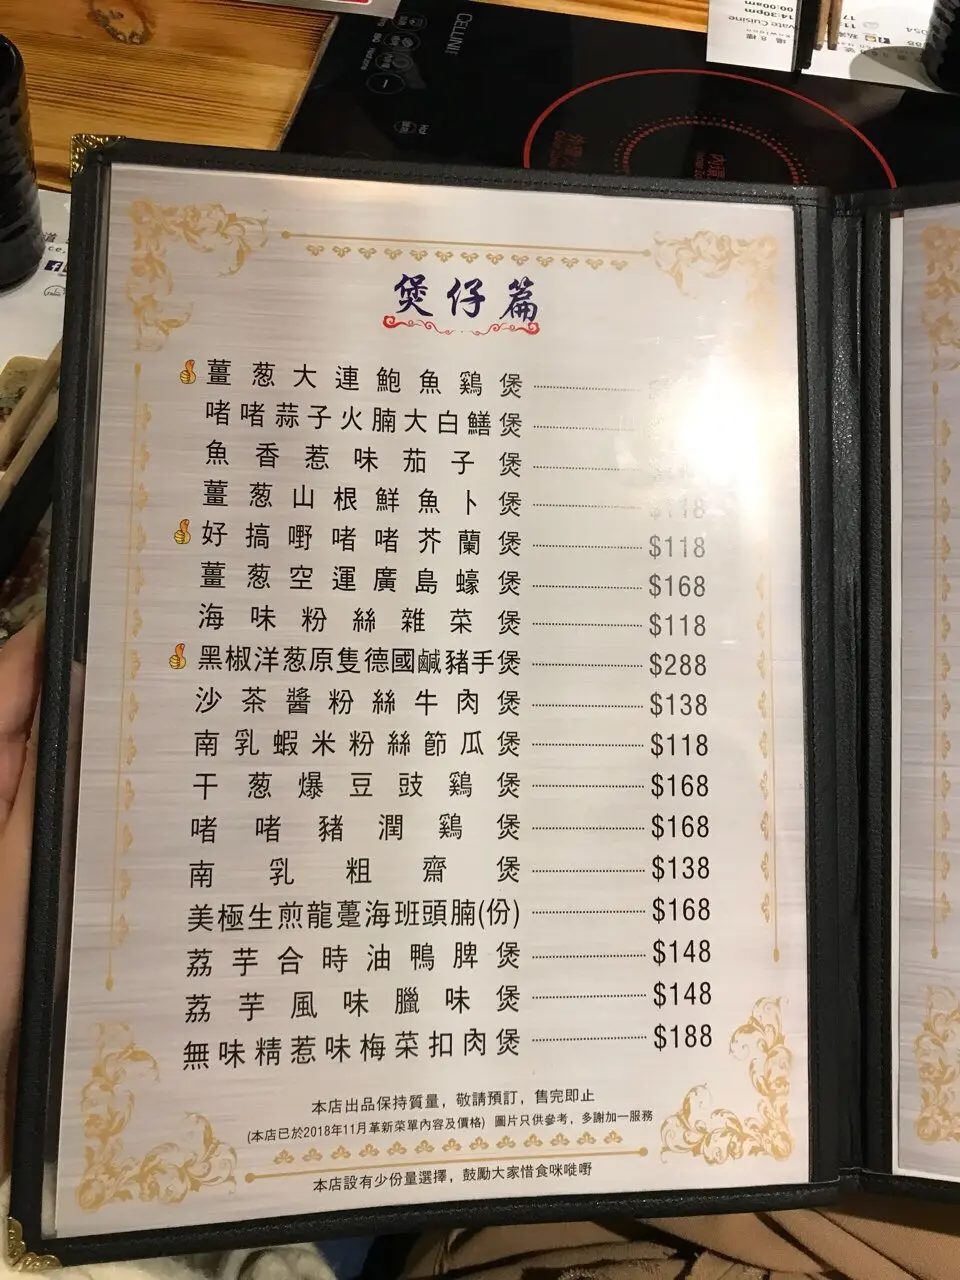 CELLINI
煲仔篇
薑葱大連鮑魚鷄煲
啫啫蒜子火腩大白鱔煲
魚香惹味茄子煲
薑葱山根鮮魚卜煲 $118
好搞嘢啫啫芥蘭煲 $118
薑葱空運廣島蠔煲 $168
海味粉絲雜菜煲 $118
黑椒洋葱原隻德國鹹豬手煲 $288
沙茶醬粉絲牛肉煲 $138
南乳蝦米粉絲節瓜煲 $118
干葱爆豆豉鷄煲 $168
啫啫豬潤鷄煲 $168
南乳粗齋煲 $138
美極生煎龍躉海班頭腩(份) $168
荔芋合時油鴨脾煲 $148
荔芋風味臘味煲 $148
無味精惹味梅菜扣肉煲 $188
本店出品保持質量，敬請預訂，售完即止
(本店已於2018年11月革新菜單內容及價格) 圖片只供參考，多謝加一服務
本店設有少份量選擇，鼓勵大家惜食咪嘥嘢